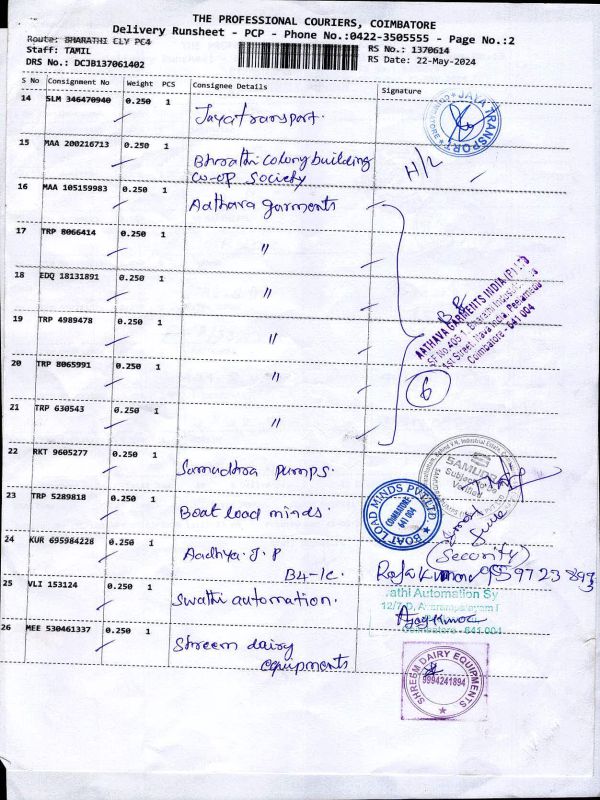 THE PROFESSIONAL COURIERS, COIMBATORE
Delivery Runsheet - PCP - Phone No.:0422-3505555 - Page No.:2
Route: BHARATHI CLY PC4
Staff: TAMIL
DRS No.: DCJB137061402
RS No.: 1370614
RS Date: 22-May-2024
S No Consignment No Weight PCS Consignee Details Signature
14 SLM 346470940 0.250 1 Jayatransport.
JAYA TRANSPORT
COIMBATORE
15 MAA 200216713 0.250 1 Bharathi colony building
co-op society
H/L
16 MAA 105159983 0.250 1 Aathava garments
17 TRP 8066414 0.250 1 "
18 EDQ 18131891 0.250 1 "
19 TRP 4989478 0.250 1 "
AATHAVA GARMENTS INDIA (P) LTD
SF No 405 1, Bharathi
1st Street, Nava India, Peelamedu
Coimbatore - 641 004
20 TRP 8065991 0.250 1 "
6
21 TRP 630543 0.250 1 "
22 RKT 9605277 0.250 1 Samudhra pumps.
23 TRP 5289818 0.250 1 Boat load minds.
BOAT LOAD MINDS PVT LTD
COIMBATORE
641 004
24 KUR 695984228 0.250 1 Aadhya.J.P
B4-1c.
(Security)
Rajakumar
25 VLI 153124 0.250 1 Swathi automation.
athi Automation Sy
Ajaykumar
Coimbatore - 641 004
26 MEE 530461337 0.250 1 Shreem dairy
equipments
SHREEM DAIRY EQUIPMENTS
9994241894